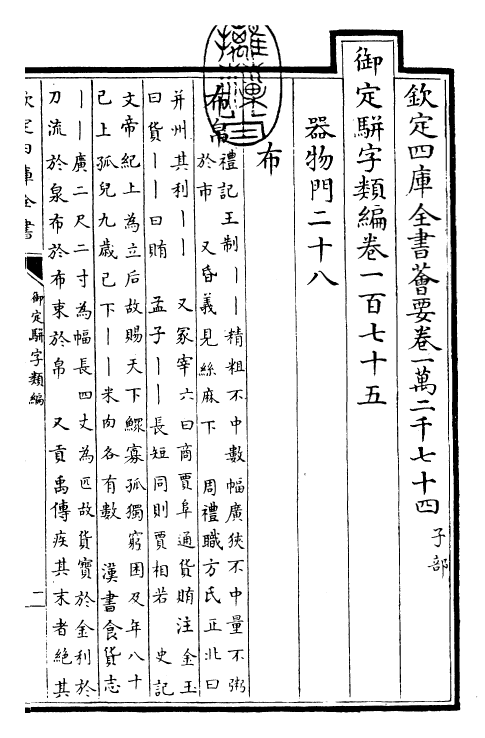 欽定四庫全書薈要卷一萬二千七十四 子部
御定駢字類編卷一百七十五
器物門二十八
布
布帛
禮記王制丨丨精粗不中數幅廣狹不中量不粥
於市 又昏義見絲麻下 周禮職方氏正北曰
并州其利丨丨 又冢宰六曰商賈阜通貨賄注金玉
曰貨丨丨曰賄 孟子丨丨長短同則賈相若 史記
文帝紀上為立后故賜天下鰥寡孤獨窮困及年八十
已上孤兒九歲已下丨丨米肉各有數 漢書食貨志
丨丨廣二尺二寸為幅長四丈為匹故貨寶於金利於
刀流於泉布於布束於帛 又貢禹傳疾其末者絕其
欽定四庫全書
御定駢字類編